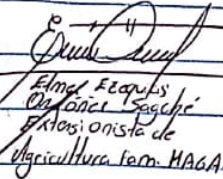 Elmer Ezequias
Ordóñez Sagché
Extensionista de
Agricultura Fam. MAGA.